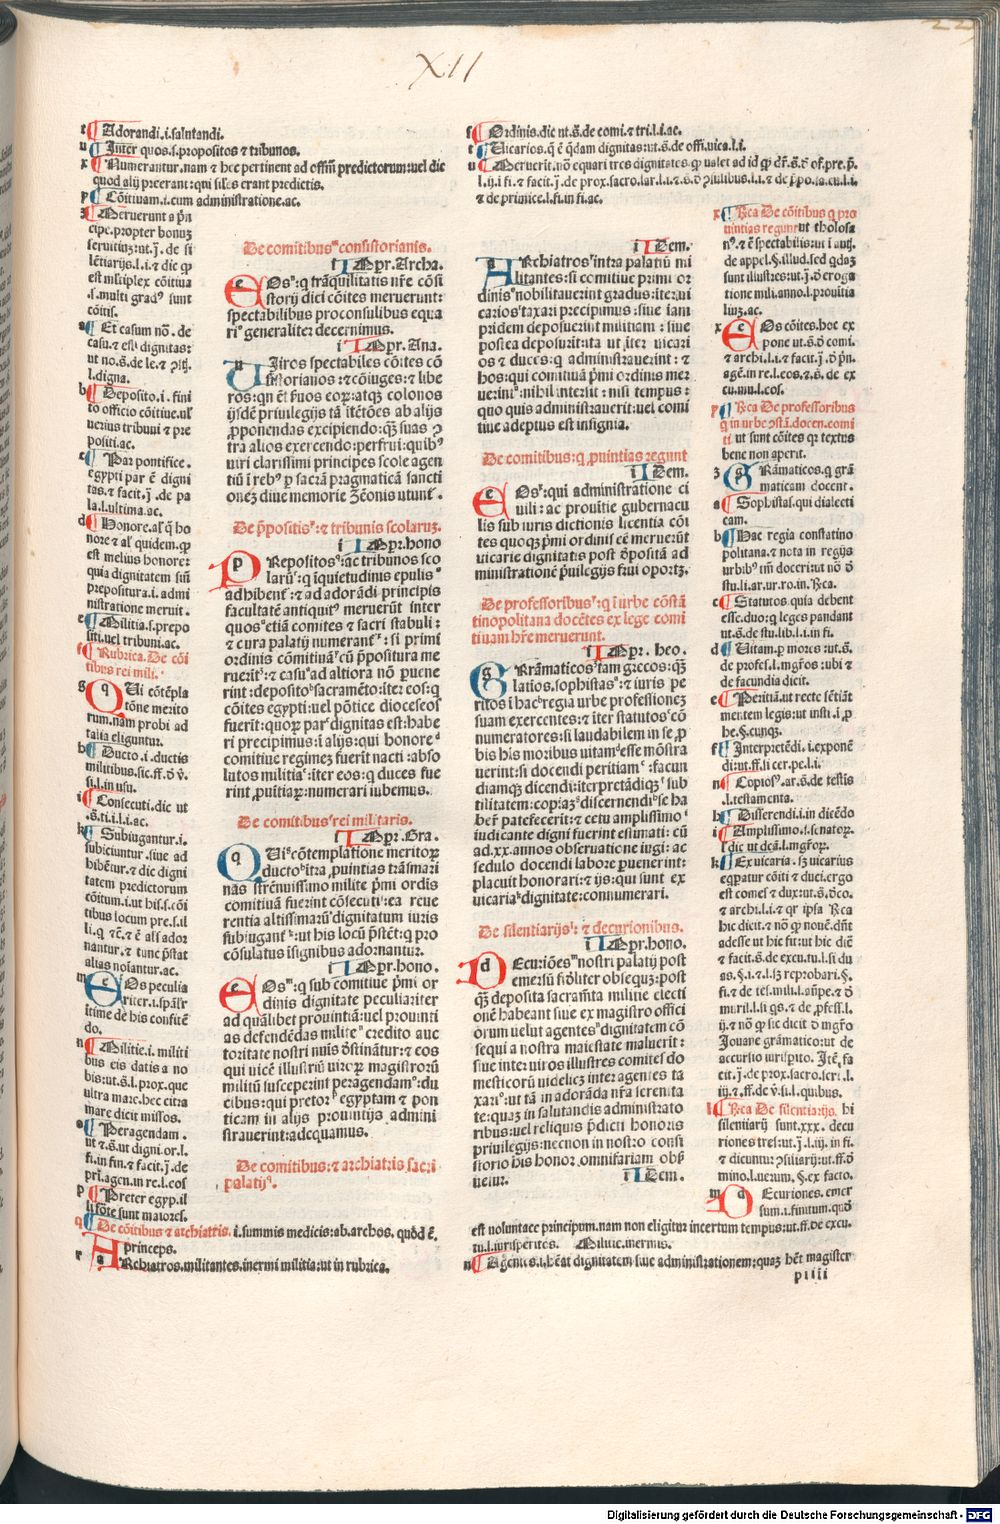 XII
Adorandi.i.salutandi.
Inter quos.s.propositos ⁊ tribunos.
Numerantur.nam ⁊ hec pertinent ad offm̄ predictorum:uel dic
quod alij preerant:qui siles erant predictis.
Cōitiuam.i.cum administratione.ac.
Meruerunt a p̄n
cipe.propter bonuȝ
seruitiuȝ:ut.j.de si
lētiarijs.l.i.⁊ dic ꝙ
est mltiplex cōitiua
.s.multi gradꝰ sunt
cōitis.
Et casum nō.de
casu.⁊ est dignitas:
ut no.s̄.de le.⁊ ꝯstj.
l.digna.
Deposito.i.fini
to officio cōitiue.ul'
uerius tribuni ⁊ pre
positi.ac.
Par pontifice.
egypti par ē digni
tas.⁊ facit.j.de pa
la.l.ultima.ac.
Honore.al' q̄ ho
nore ⁊ al' quidem.ꝙ
est melius honore:
quia dignitatem sm̄
prepositura.i.admi
nistratione meruit.
Militia.s.prepo
siti.uel tribuni.ac.
Rubrica.De cōi
tibus rei mili.
QUi cōtēpla
tōne merito
rum.nam probi ad
talia eliguntur.
Ducto.i.ductis
militibus.sic.ff.ð v̄.
si.l.in usu.
Consecuti.dic ut
.s̄.ti.i.l.i.ac.
Subiugantur.i.
subiciuntur.siue ad
bibētur.⁊ dic digni
tatem predictorum
cōitum.i.ut his.s.cōi
tibus locum pre.s.il
li.q̄ tē.⁊ ē als̄ ador
nantur.⁊ tunc p̄stat
alias noīantur.ac.
EOs peculia
riter.i.spālr
itime de his confitē
do.
Militie.i.militi
bus eis datis a no
bis:ut.s̄.l.prox.que
ultra mare.hec citra
mare dicit missos.
Peragendam.
ut ⁊.s̄.ut digni.or.l.
fi.in fin.⁊ facit.j.de
pri.agen.in re.l.cos
Preter egyp.il
li forte sunt maiores.
De cōitibus ⁊ archiatris.i.summis medicis:ab.archos.quod ē.
princeps.
ARchiatros.militantes.inermi militia:ut in rubrica.
De comitibusᵐ consistorianis.
i Impr.Archa.
EOsⁿ:q̄ trāquilitatis nr̄e cōsi
storij dici cōites meruerunt:
spectabilibus proconsulibus equa
riᵒ generaliter decernimus.
i Impr.Ana.
UIros spectabiles cōites cō
sistorianos:⁊ cōiuges:⁊ libe
ros:qn̄ et s̄uos eoꝝ:atqȝ colonos
ijsdē priuilegijs tā itētōes ab alijs
ꝓponendas excipiendo:qȝ suas ꝯ
tra alios exercendo:perfrui:quibꝰ
uiri clarissimi principes scole agen
tiū ī rebꝰ ꝑ sacrā pragmaticā sancti
oneȝ diue memorie Zēonis utunt'.
De p̄positisᵗ:⁊ tribunis scolarum.
i Impr.hono
PRepositosᵘ:ac tribunos sco
larūᵗ:q̄ īquietudinis epulisᵘ
adhibentᵗ:⁊ ad adorādi principis
facultatē antiquitꝰ meruerūt inter
quosᵘ etiā comites ⁊ sacri stabuli:
⁊ cura palatij numerantˣ:si primi
ordinis cōmitiuāʸ:cū p̄positura me
rueritᶻ:⁊ casuᵃ ad altiora nō ꝑuene
rint:depositoᵇ sacramēto:iter eos:q̄
cōites egypti:uel pōtice dioceseos
fuerīt:quoꝝ parᶜ dignitas est:habe
ri precipimus:ī alijs:qui honoreᵈ
comitiue regimeȝ fuerit nacti:abso
lutos militiaᵉ:iter eos:q̄ duces fue
rint ꝓuītiaꝝ:numerari iubemus.
De comitibusᶠ rei militaris.
i Impr.Gra.
QUiᵍ cōtemplatione meritoꝝ
ductoʰ itra ꝓuintias trāsmari
nas strēnuissimo milite p̄mi ordis
comitiuā fuerint cōsecutiⁱ:ea reue
rentia altissimarū dignitatum iuris
subiugantᵏ:ut his locū p̄stēt:q̄ pro
cōsulatus īsignibus adornantur.
i Impr.hono.
EOsᵐ:q̄ sub comitiue p̄mi or
dinis dignitate peculiariter
ad quālibet prouintiā:uel prouinti
as defendēdas militeⁿ credito auc
toritate nostri nūis destinātur:⁊ eos
qui uicē illustriū uiroꝝ magistrorū
militū susceperint peragendamᵒ:du
cibus:qui pretorᵖ egyptam ⁊ pon
ticam in alijs prouintijs admini
strauerint:adequamus.
De comitibus:⁊ archiatris sacri
palatijᵠ.
Ordinis.dic ut.s̄.de comi.⁊ tri.l.i.ac.
Uicarios.q̄ ē q̄dam dignitas:ut.s̄.de offi.uica.l.i.
Meruerit.nō equari tres dignitates.ꝙ ualet ad id ꝙ dr̄.s̄.ð of.pre.p̄.
l.ij.i fi.⁊ facit.j.de prox.sacro.lar.l.i.⁊.s̄.ð ꝯsulibus.l.i.⁊ de p̄po.la.cu.l.i.
⁊ de primice.l.fi.in fi.ac.
i Idem.
ARchiatrosʳ intra palatiū mi
litantes:si comitiue primi or
dinisˢ nobilitauerint gradus:iter:ui
cariosᵗ taxari precipimus:siue iam
pridem deposuerint militiam:siue
postea deposuerīt:ita ut īter uicari
os ⁊ duces:q̄ administrauerint:⁊
hos:qui comitiuā p̄mi ordinis mer
uerintᵘ:nihil intersit:nisi tempus:
quo quis administrauerit:uel comi
tiue adeptus est insignia.
De comitibus:q̄ ꝓuintias regunt
i Idem.
EOsˣ:qui administratione ci
uili:ac prouītie gubernacu
lis sub iuris dictionis licentia cōi
tes quoqȝ p̄mi ordinis eē meruerūt
uicarie dignitatis post depositā ad
ministrationē p̄uilegijs frui oportȝ.
De professoribusʸ:q̄ ī urbe cōstā
tinopolitana docētes ex lege comi
tiuam hr̄e meruerunt.
i Impr.heo.
GRāmaticosᶻ tam grecos:qȝ
latīos.sophistasᵃ:⁊ iuris pe
ritos ī hacᵇ regia urbe professioneȝ
suam exercentes:⁊ īter statutosᶜ cō
numeratores:si laudabilem in se ꝓ
bis his moribus uitamᵈ esse mōstra
uerint:si docendi peritiamᵉ:facun
diamqȝ dicendi:iterpretādiqȝᶠ sub
tilitatem:copiāqȝᵍ discernendiʰ se ha
ber patefecerit:⁊ cetu amplissimoⁱ
iudicante digni fuerint estimati:cū
ad.xx.annos obseruatione iugi:ac
sedulo docendi labore ꝑuenerint:
placuit honorari:⁊ ijs:qui sunt ex
uicariaᵏ dignitate:connumerari.
De silentiarijsˡ:⁊ decurionibus.
i Impr.hono.
DEcuriōesᵐ nostri palatij post
emersū fideliter obsequȝ:post
qȝ deposita sacramēta militie electi
onē habeant siue ex magistro offici
orum uelut agentesⁿ dignitatem cō
sequi a nostra maiestate maluerit:
siue inter uiros illustres comites do
mesticorū uidelicȝ inter agentes ta
xariᵒ:ut tā in adorāda nr̄a serenita
te:quaȝ in salutandis administrato
ribus:uel reliquis p̄dicti honoris
priuilegijs:necnon in nostro consi
storio his honor omnifariam obser
uetur.
i Idem.
Rca De cōitibus q̄ pro
uintias regunt:ut tholosa
nꝰ.⁊ ē spectabilis:ut i autj.
de appel.§.illud.sed qdaȝ
sunt illustres:ut.j.ð eroga
tione mili.anno.l.prouitia
liuȝ.ac.
EOs cōites.hoc ex
pone ut.s̄.ð comi.
⁊ archi.l.i.⁊ facit.j.ð p̄n.
agē.in re.l.cos.⁊.s̄.de ex
cu.mu.l.cos.
Rca De professoribus
q̄ in urbe ꝯst.docen.comi
ti ut sunt cōites q̄ textus
bene non aperit.
GRāmaticos.q̄ grā
maticam docent.
Sophistas.qui dialecti
cam.
Hac regia constatino
politana.⁊ nota in regijs
urbibꝰ sm̄ doceri:ut nō ð
stu.li.ur.ro.in.Rca.
Statutos.quia debent
esse.duo:q̄ leges pandant
ut.s̄.de stu.lib.l.i.in fi.
Uitam.ꝑ mores:ut.s̄.
de profes.l.mgros:ubi ⁊
de facundia dicit.
Peritiā.ut recte sētiāt
mentem legis:ut insti.i ꝓ
he.§.cunqȝ.
Interpretēdi.i.exponē
di:ut.ff.si cer.pe.l.i.
Copiosꝰ.ar.s̄.de testis
.l.testamenta.
Disserendi.i.in dicēdo
Amplissimo.i.senatoꝝ.
Ex uicaria.s.uicarius
eqparatur cōiti ⁊ duci.ergo
est comes ⁊ dux:ut.s̄.ð co.
⁊ archi.l.i.⁊ qr ipsa Rca
hic dicit.⁊ nō ꝙ nouē.dn̄t
adesse ut hic fit:ut hic dīē
⁊ facit.s̄.de excu.tu.l.si du
as.§.i.⁊.l.sȝ reprobari.§.
Jouane grāmatico:ut de
accursio iurispito.Itē.fa
cit.j.de prox.sacro.scri.l.
iij.⁊.ff.de v̄.si.l.quibus.
Rca De silentiarijs. hi
silentiarij sunt.xxx.decu
riones tres:ut.j.l.iij.in fi.
⁊ dicuntur ꝯsiliarij:ut.ff.ð
mino.l.uerum.§.ex facto.
DEcuriones.emer
sum.i.finitum.quod
est uoluntate principum.nam non eligitur incertum tempus:ut.ff.de excu.
tu.l.iurisperitos. Militie.inermis.
Agentes.i.hēat dignitatem siue administrationem:quaȝ hēt magister
piiii
Digitalisierung gefördert durch die Deutsche Forschungsgemeinschaft - DFG